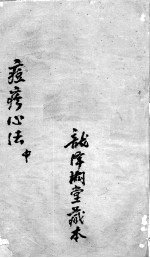 龍澤潤堂藏本
痘疹心法 中